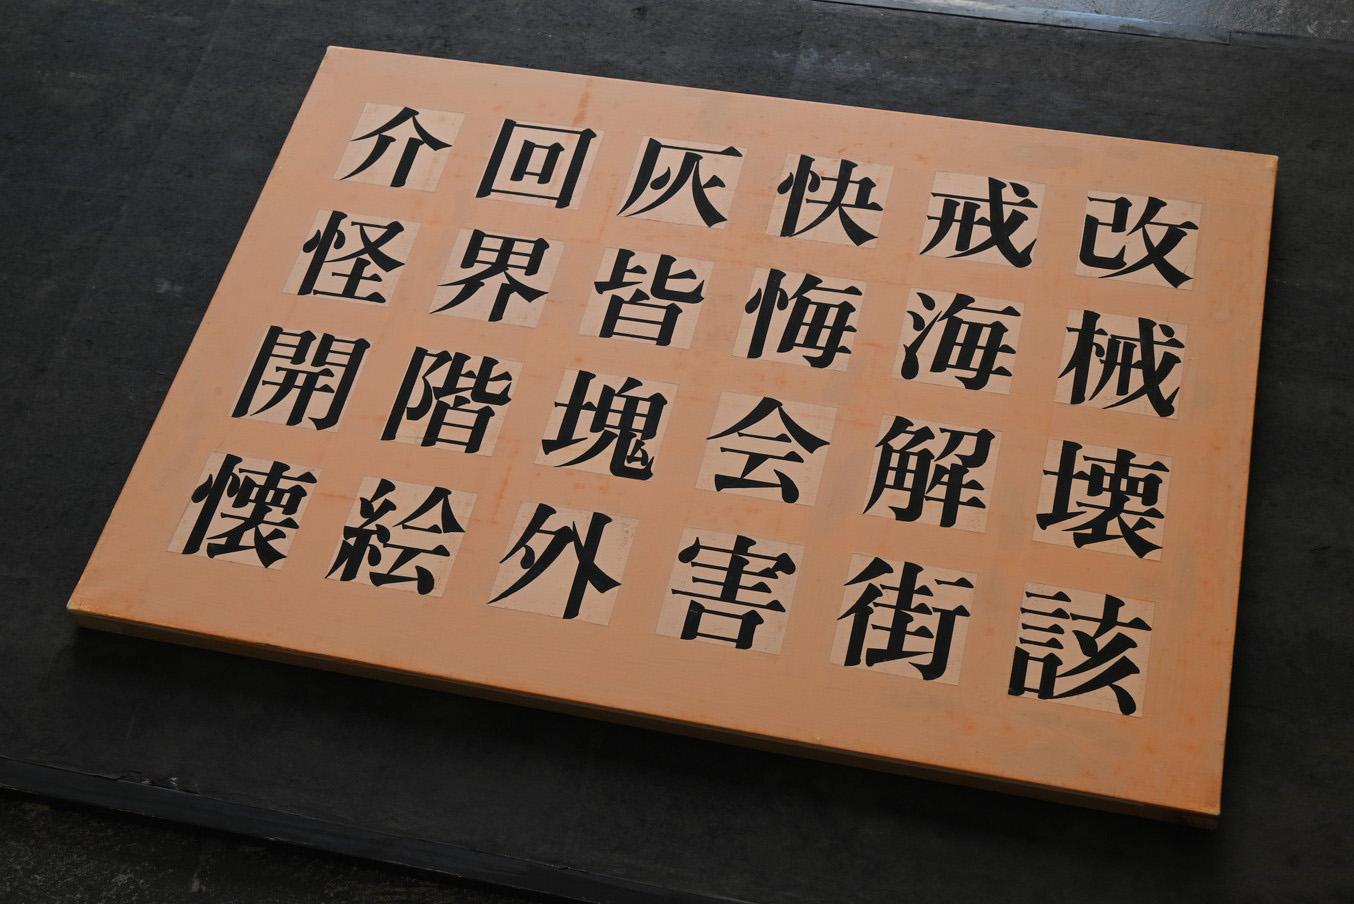 介回灰快戒改
怪界皆悔海械
開階塊会解壊
懐絵外害街該